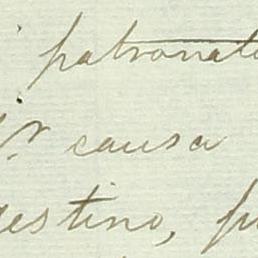 patronato
causa
estino, p